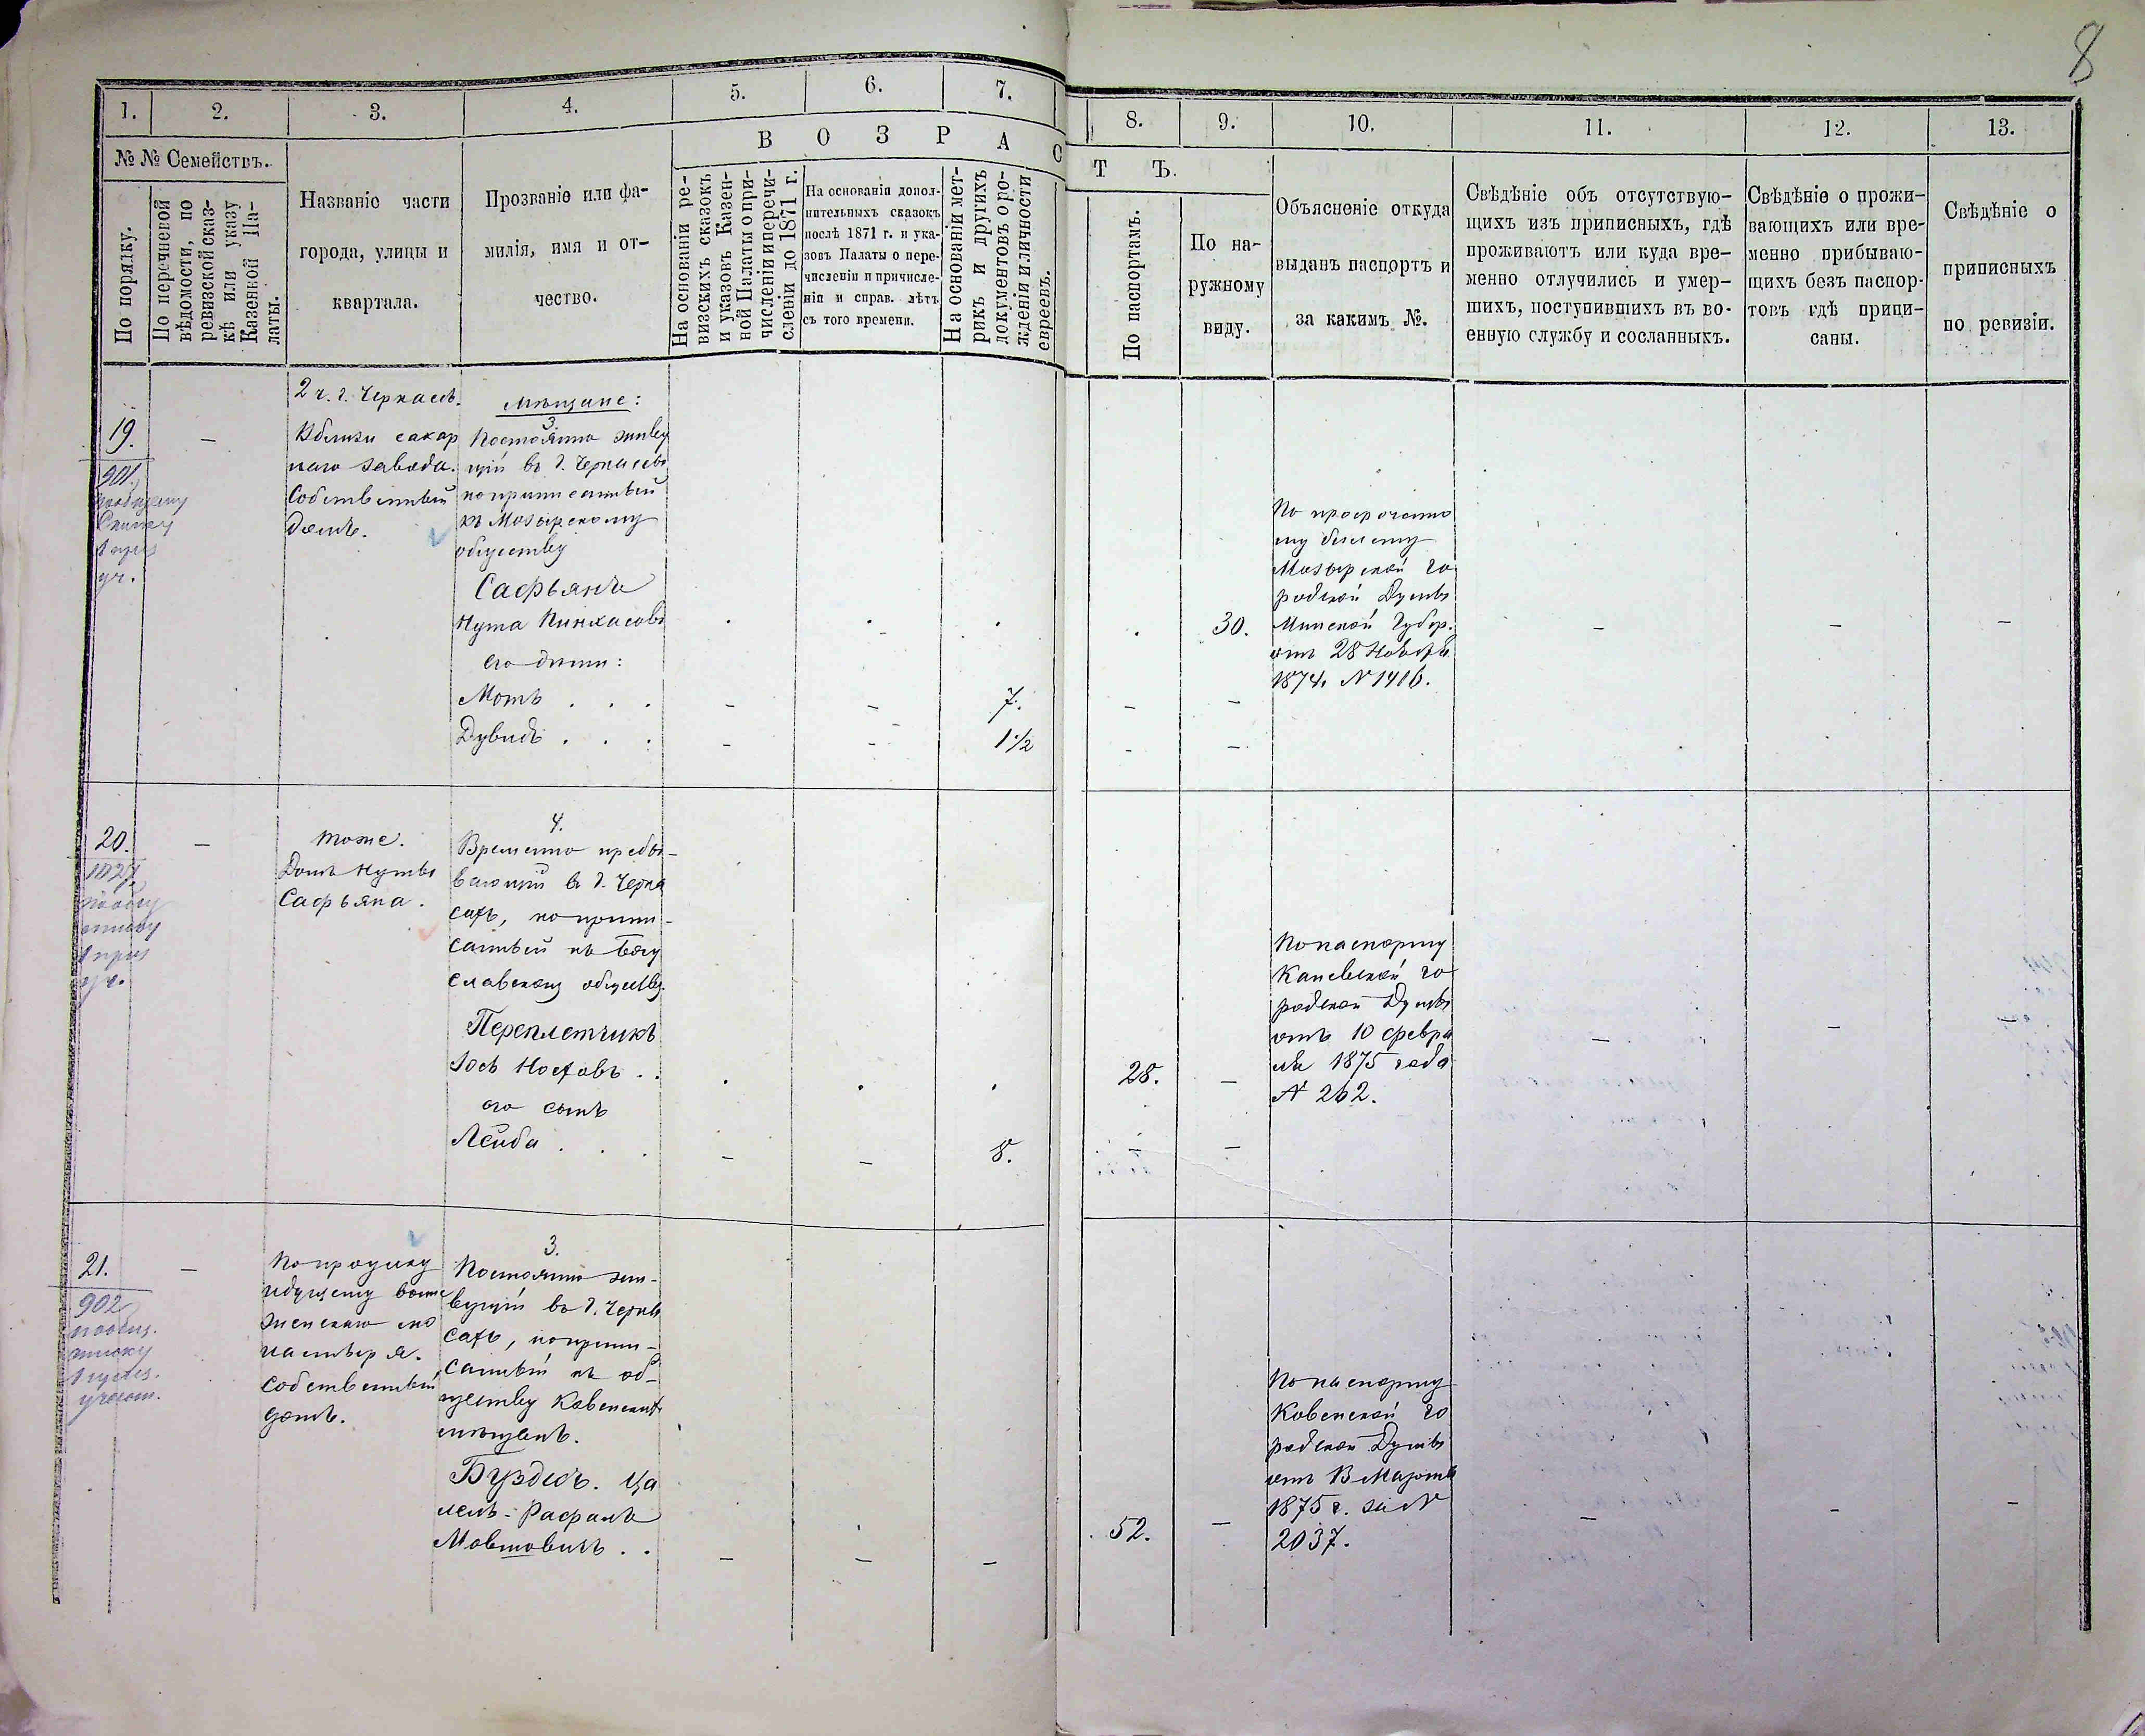 8
1. 2. 3. 4. 5. 6. 7. 8. 9. 10. 11. 12. 13.
№ № Семействъ.
По порядку.
По перечневой
вѣдомости, по
ревизской сказ-
кѣ или указу
Казенной Па-
латы.
Названіе части
города, улицы и
квартала.
Прозваніе или фа-
милія, имя и от-
чество.
В О З Р А С Т Ъ.
На основаніи ре-
визскихъ сказокъ
и указовъ Казен-
ной Палаты о при-
численіи и перечи-
сленіи до 1871 г.
На основаніи допол-
нительныхъ сказокъ
послѣ 1871 г. и ука-
зовъ Палаты о пере-
численіи и причисле-
ніи и справ. лѣтъ
съ того времени.
На основаніи мет-
рикъ и другихъ
документовъ о ро-
жденіи и личности
евреевъ.
По паспортамъ.
По на-
ружному
виду.
Объясненіе откуда
выданъ паспортъ и
за какимъ №.
Свѣдѣніе объ отсутствую-
щихъ изъ приписныхъ, гдѣ
проживаютъ или куда вре-
менно отлучились и умер-
шихъ, поступившихъ въ во-
енную службу и сосланныхъ.
Свѣдѣніе о прожи-
вающихъ или вре-
менно прибываю-
щихъ безъ паспор-
товъ гдѣ припи-
саны.
Свѣдѣніе о
приписныхъ
по ревизіи.
19.
901.
пообщему
списку
1 приз
уч.
—
2 ч. г. Черкасъ.
Вблизи сахар
наго завода.
Собственный
домъ.
Мѣщане:
3.
Постоянно живу
щій въ г. Черкасахъ
но приписанный
къ Мозырскому
обществу
Сафьянъ
Нута Пинхасовъ
его дѣти:
Мотъ . . .
Дувидъ . . .
7.
1½
30.
По просрочено
му билету
Мозырской го
родской Думы
Минской Губер.
отъ 28 Ноября
1874. № 1416.
20.
—
тоже.
Домъ Нуты
Сафьяна.
4.
Временно пребы-
вающій въ г. Черка
сахъ, но припи-
санный къ Богу
славскому обществу.
Переплетчикъ
Іосъ Носховъ . .
его сынъ
Лейба . . .
8.
28.
По паспорту
Каневской го
родской Думы
отъ 10 февра
ля 1875 года
№ 262.
21.
902
пообщ.
списку
1 приз.
участ.
—
По проулку
идущему возлѣ
женскаго мо
настыря.
Собственный
домъ.
3.
Постоянно жи-
вущій въ г. Черка
сахъ, но припи-
санный къ об-
ществу Ковенскихъ
мѣщанъ.
Буздесъ. Ца
лелъ-Рафалъ
Мовшовичъ . .
52.
По паспорту
Ковенской го
родской Думы
отъ 13 Марта
1875 г. за №
2037.